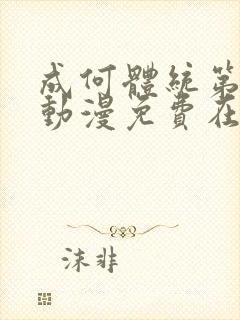 成何體統第
動漫免費在
沫非